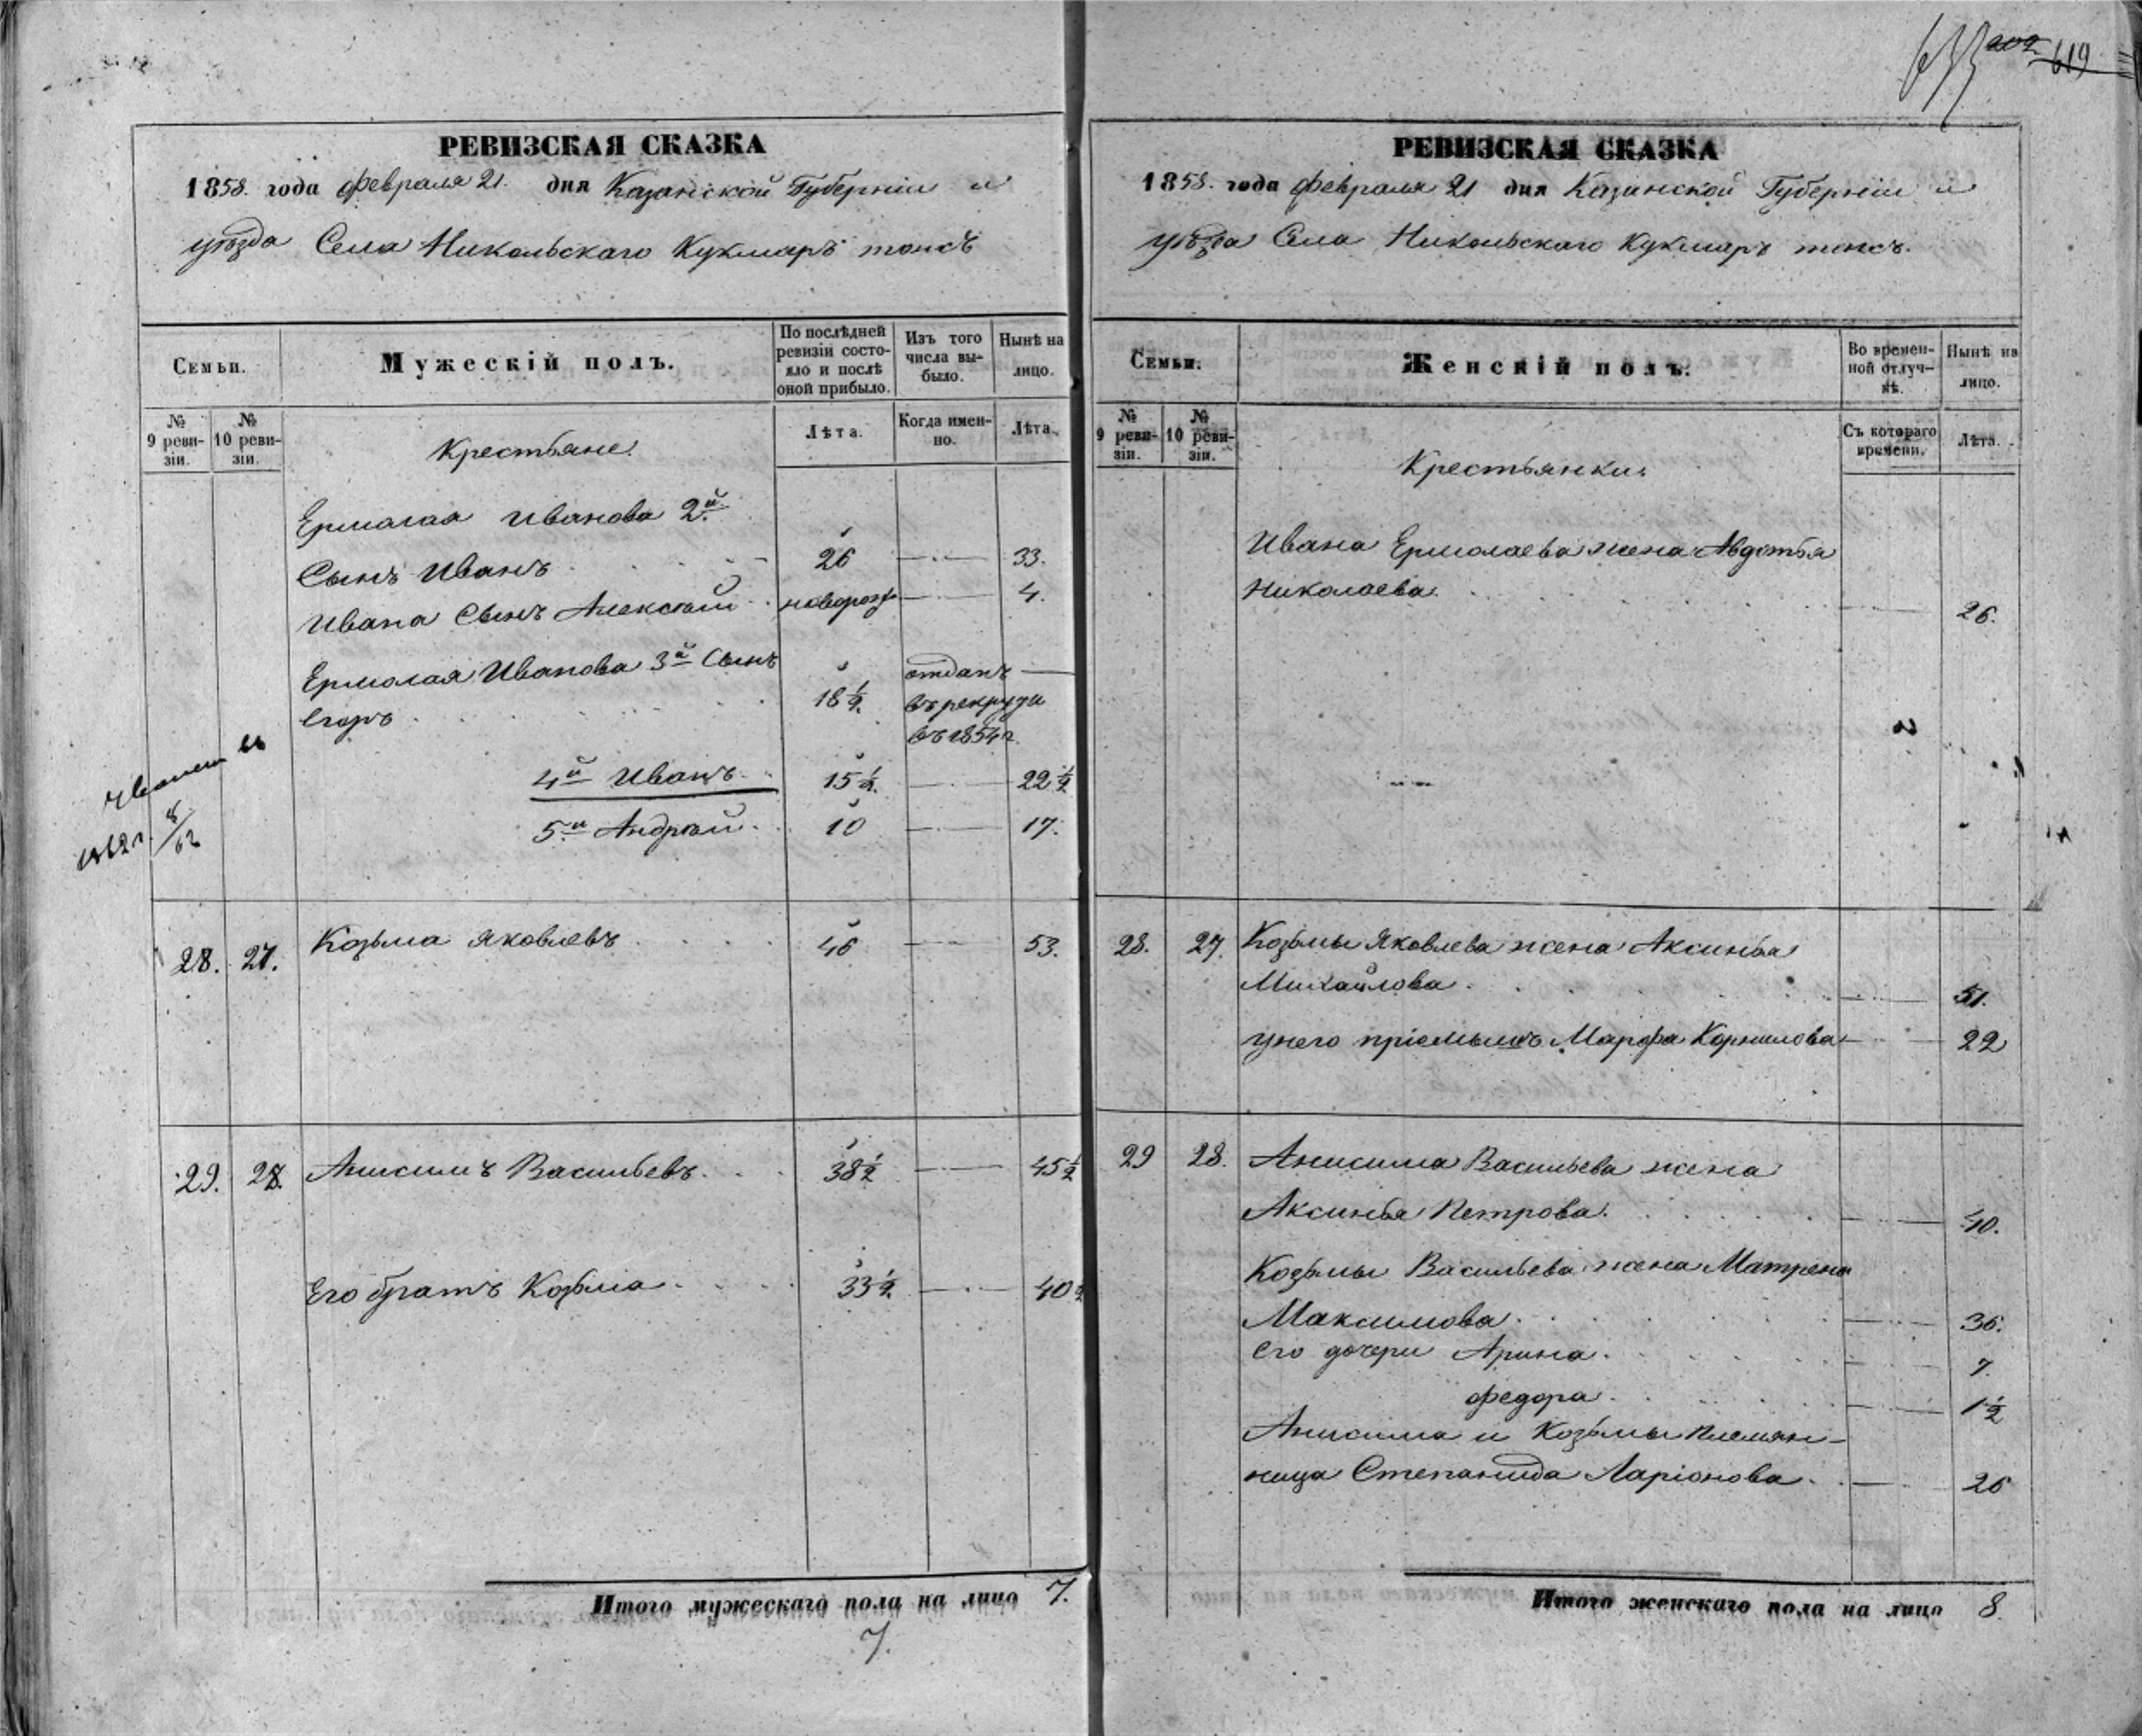 619
РЕВИЗСКАЯ СКАЗКА
1858. года февраля 21. дня Казанской Губерніи и
уѣзда Села Никольскаго Кукмаръ тожъ
Семьи.
Мужескій полъ.
По послѣдней ревизіи состояло и послѣ оной прибыло.
Изъ того числа выбыло.
Нынѣ на лицо.
№ 9 ревизіи.
№ 10 ревизіи.
Крестьяне.
Лѣта.
Когда именно.
Лѣта.
Ермолая Иванова 2й
Сынъ Иванъ 26 33.
Ивана Сынъ Алексѣй новорож 4.
Ермолая Иванова 3й Сынъ
Егоръ 18½. отданъ
въ рекруты
въ 1854 г.
4й Иванъ 15½. 22½
5й Андрѣй 10 17.
28. 27. Козьма Яковлевъ 46 53.
29. 28. Анисимъ Васильевъ 38½ 45½
Его братъ Козьма 33½. 40½
Итого мужескаго пола на лицо 7.
7.
РЕВИЗСКАЯ СКАЗКА
1858. года февраля 21 дня Казанской Губерніи и
уѣзда Села Никольскаго Кукмаръ тожъ.
Семьи.
Женскій полъ.
Во временной отлучкѣ.
Нынѣ на лицо.
№ 9 ревизіи.
№ 10 ревизіи.
Крестьянки.
Съ котораго времени.
Лѣта.
Ивана Ермолаева жена Авдотья
Николаева. 26.
28. 27. Козьмы Яковлева жена Аксинья
Михайлова 51.
у него пріемышъ Марфа Корнилова 22
29 28. Анисима Васильева жена
Аксинья Петрова. 40.
Козьмы Васильева жена Матрена
Максимова 36.
Его дочери Арина. 7.
Федора. 1½
Анисима и Козьмы племян-
ница Степанида Ларіонова 26
Итого женскаго пола на лицо 8.